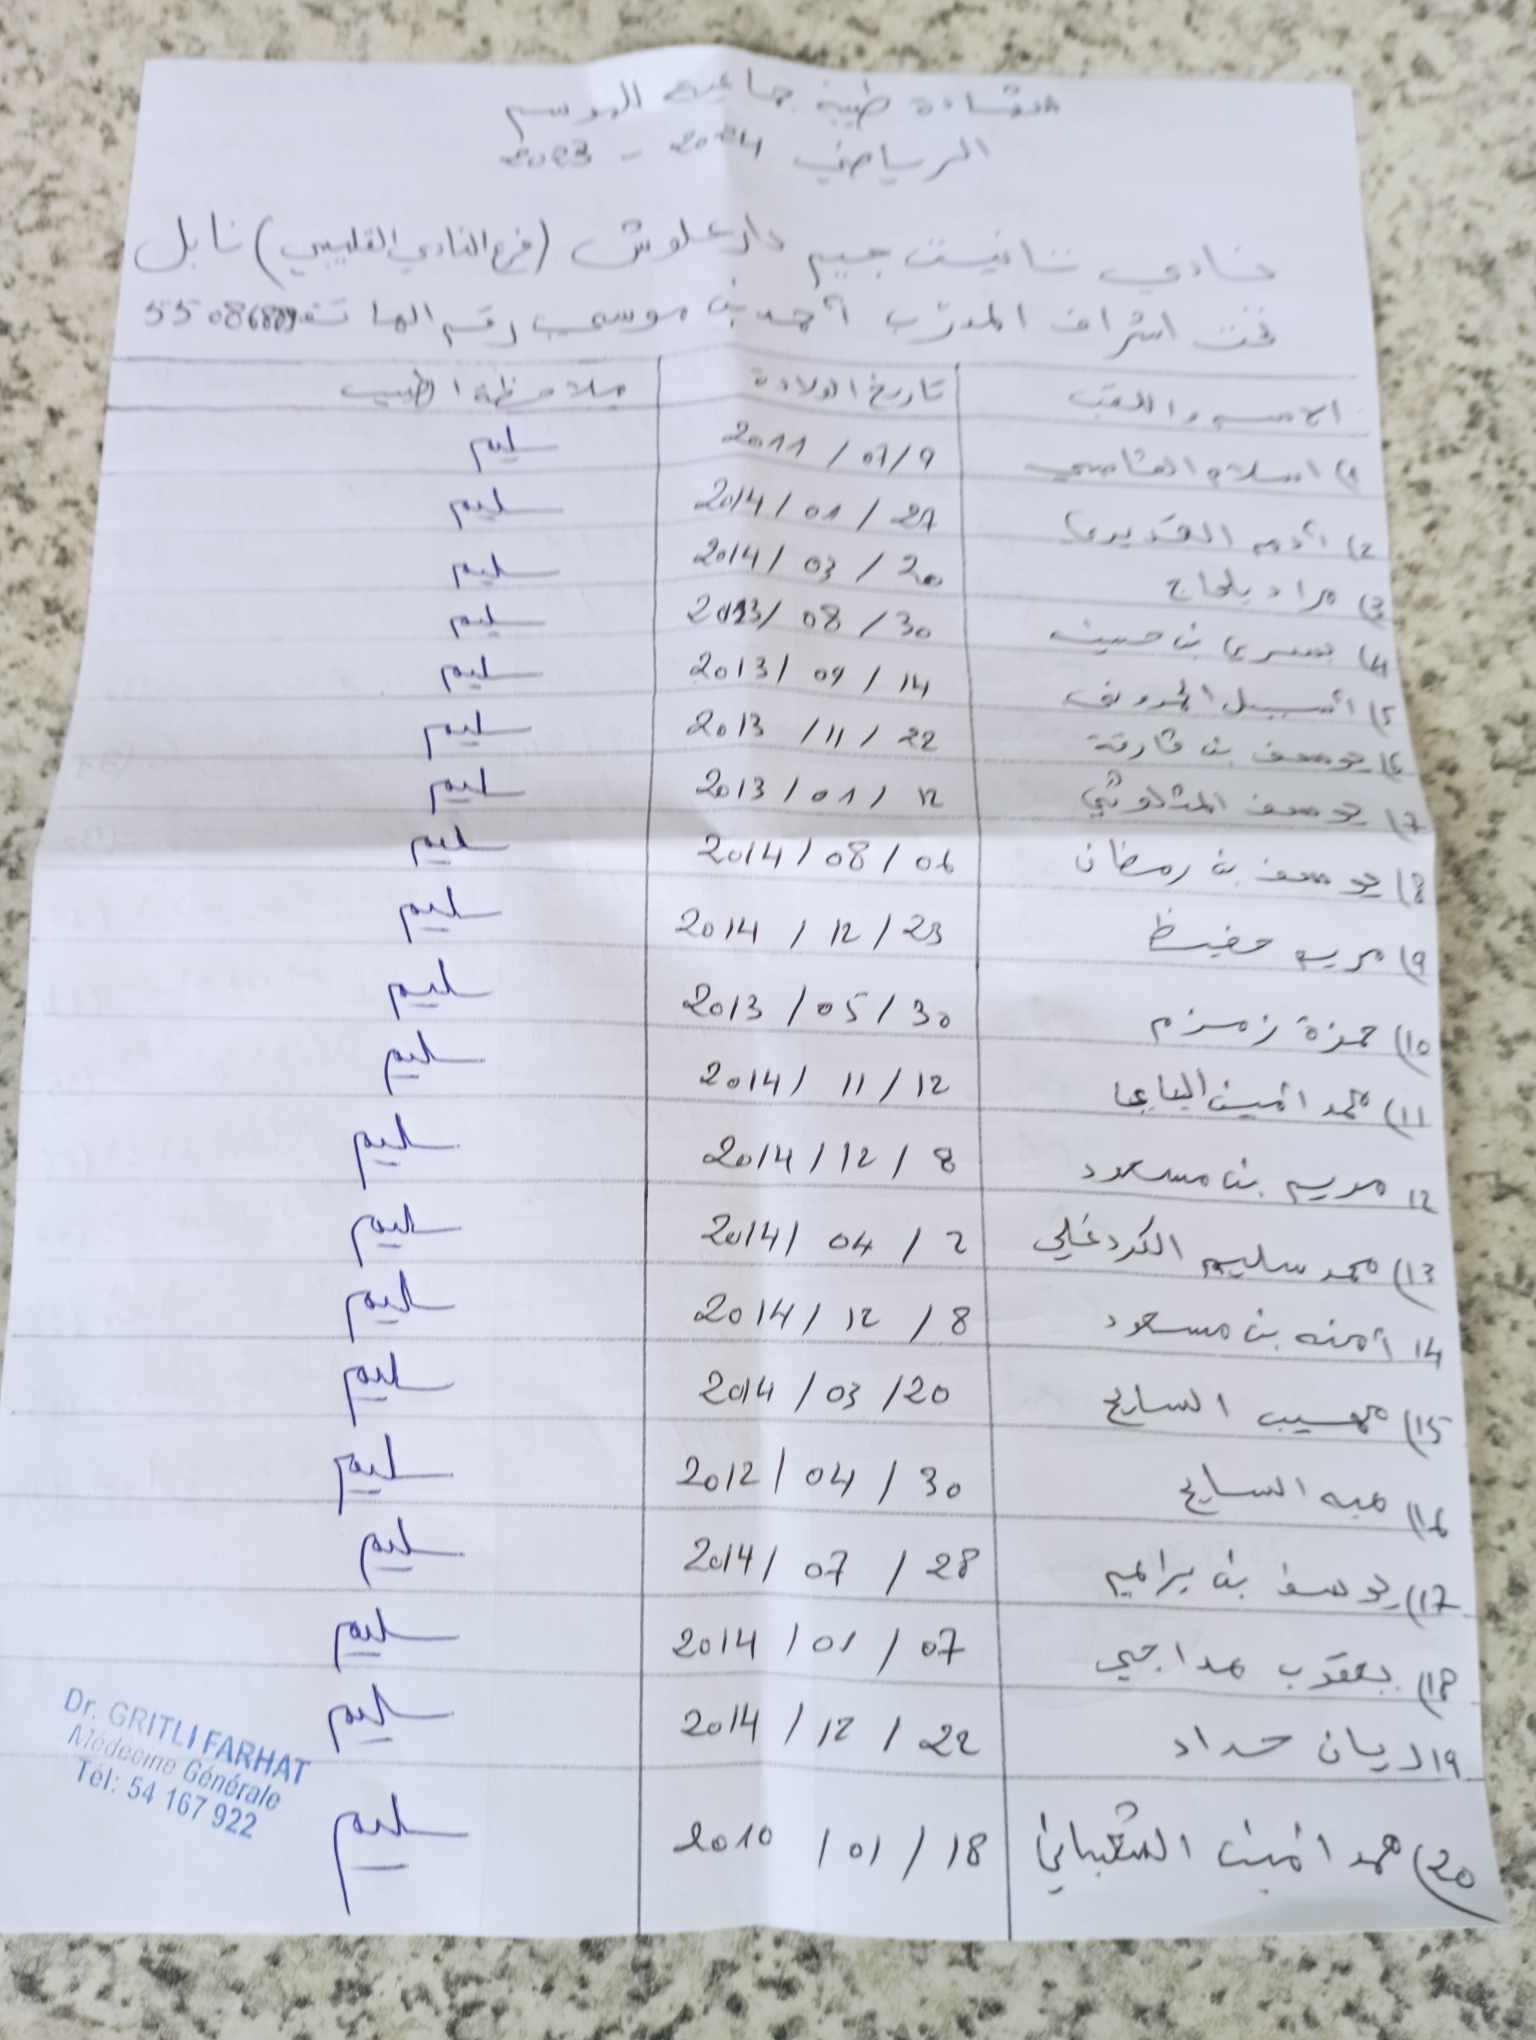 شهادة طبية جماعية الموسم
الرياضي 2024 - 2023
نادي تانيت جيم دار علوش (فرع النادي القليبي) نابل
تحت اشراف المدرب أحمد بن موسى رقم الهاتف 55
الاسم واللقب تاريخ الولادة ملاحظة الطبيب
1) اسلام القاسمي 9/07/2011 سليم
2) أدم القديري 27/01/2014 سليم
3) مراد بلحاج 20/03/2014 سليم
4) يسرى بن حسين 30/08/2013 سليم
5) أسيل 14/09/2013 سليم
6) يوسف بن قارقة 22/11/2013 سليم
7) يوسف المثلوثي 12/01/2013 سليم
8) يوسف بن رمضان 06/08/2014 سليم
9) مريم حفيظ 23/12/2014 سليم
10) حمزة زمزم 30/05/2013 سليم
11) محمد أمين 12/11/2014 سليم
12 مريم بن مسعود 8/12/2014 سليم
13) محمد سليم الكردغلي 2/04/2014 سليم
14 أمنه بن مسعود 8/12/2014 سليم
15) مهيب السايح 20/03/2014 سليم
16) هبه السايح 30/04/2012 سليم
17) يوسف بن براهيم 28/07/2014 سليم
18) يعقوب هداجي 07/01/2014 سليم
19 ريان حداد 22/12/2014 سليم
20) محمد أمين الشعباني 18/01/2010 سليم
Dr. GRITLI FARHAT
Médecine Générale
Tél: 54 167 922